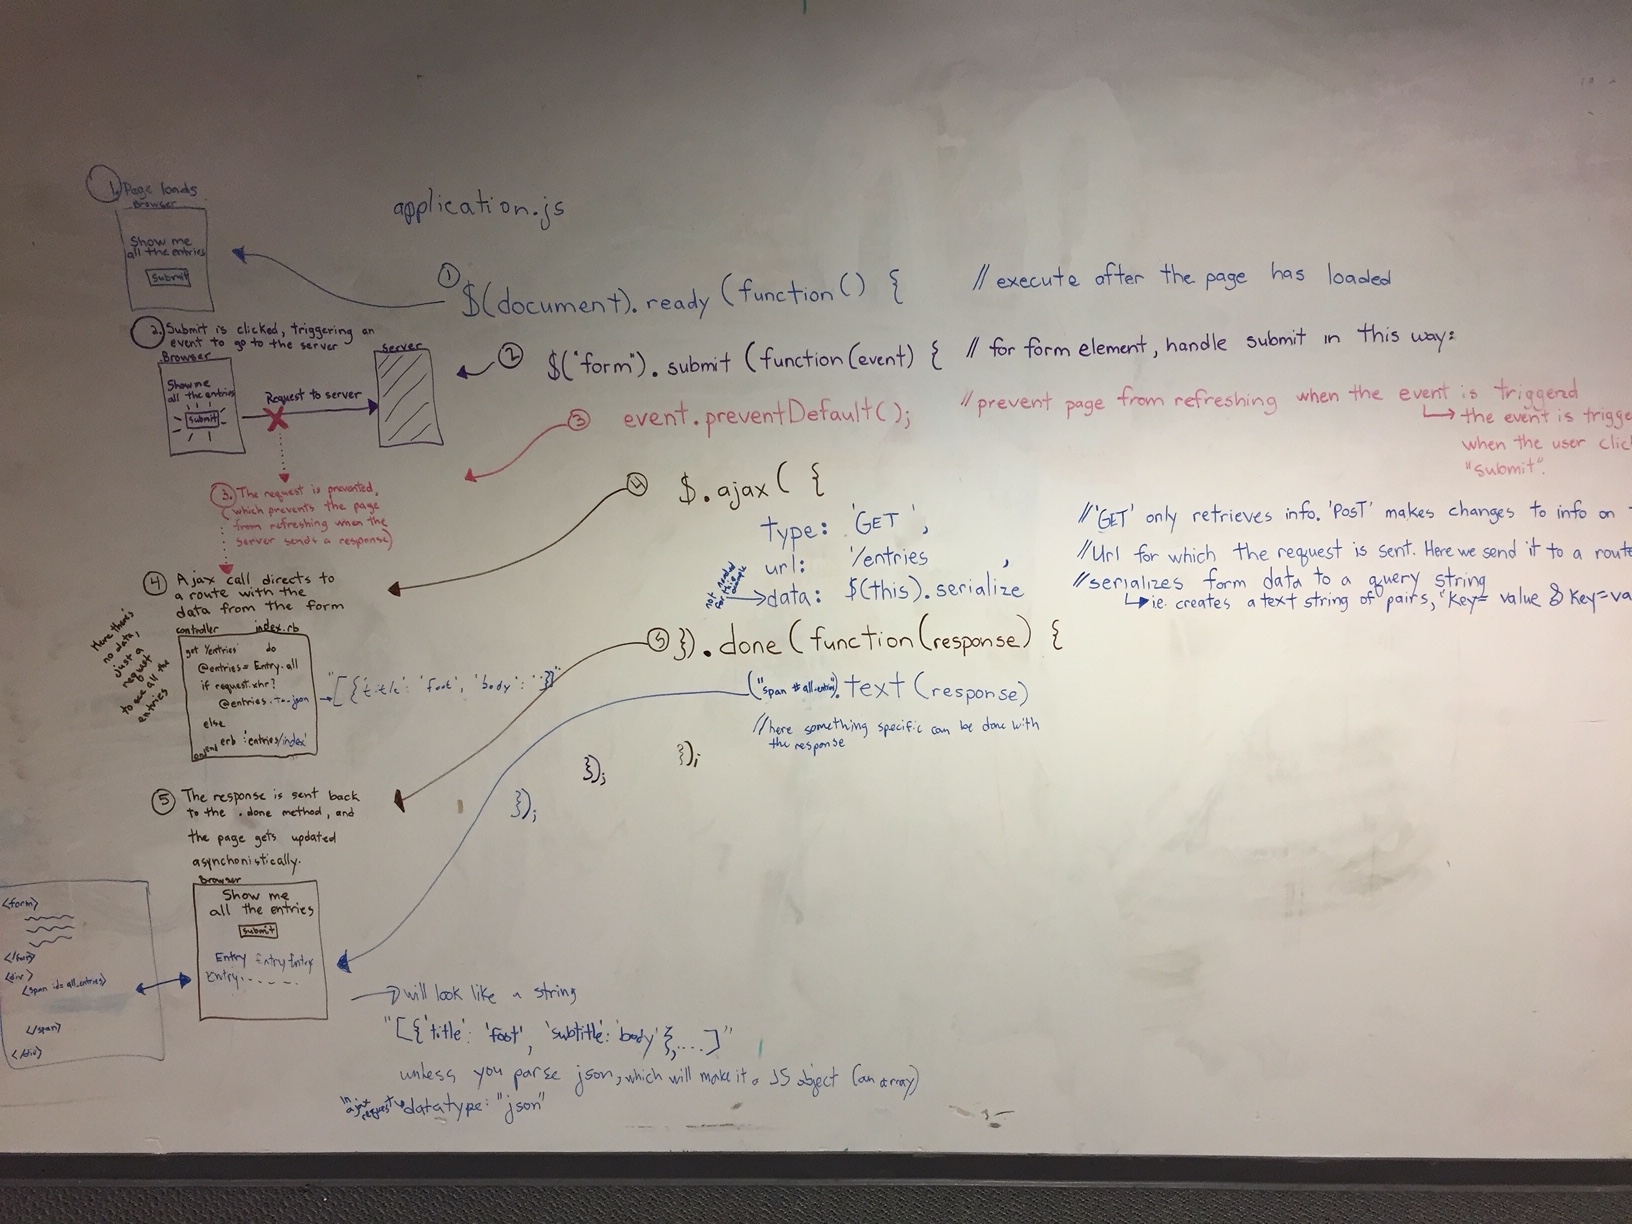 1. Page loads
Browser
Show me
all the entries
Submit
2. Submit is clicked, triggering an
event to go to the server
Browser
Server
Show me
all the entries
Submit
Request to server
3. The request is prevented,
(which prevents the page
from refreshing when the
server sends a response)
4 Ajax call directs to
a route with the
data from the form
Here there's
no data,
just a
request
to see all the
entries
controller index.rb
get '/entries' do
@entries = Entry.all
if request.xhr?
@entries.to_json
else
erb :'entries/index'
end
"[{'title': 'foot', 'body': ''}]"
5 The response is sent back
to the .done method, and
the page gets updated
asynchonistically.
Browser
Show me
all the entries
Submit
Entry Entry Entry
Entry.....
<form>
</form>
<div>
<span id=all_entries>
</span>
</div>
application.js
1 $(document).ready(function() { // execute after the page has loaded
2 $("form").submit(function(event) { // for form element, handle submit in this way:
3 event.preventDefault(); // prevent page from refreshing when the event is triggered
the event is trigge
when the user clic
"submit".
4 $.ajax({
type: 'GET', // 'GET' only retrieves info. 'POST' makes changes to info on
url: '/entries , // Url for which the request is sent. Here we send it to a route
not needed
for this example
data: $(this).serialize // serializes form data to a query string
ie. creates a text string of pairs, "Key= value & Key=va
5 }).done(function(response) {
("span #all_entries").text(response)
// here something specific can be done with
the response
});
});
});
will look like a string
"[{'title': 'foot', 'subtitle': 'body'},....]"
unless you parse json, which will make it a JS object (an array)
in ajax
request
datatype: "json"